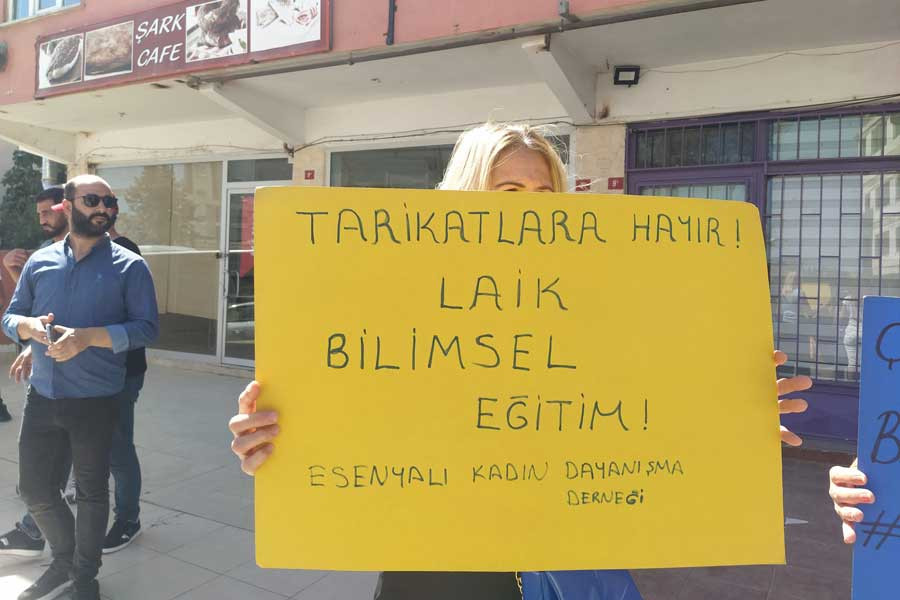 ŞARK
CAFE
TARİKATLARA HAYIR!
LAİK
BİLİMSEL
EĞİTİM!
ESENYALI KADIN DAYANIŞMA
DERNEĞİ
Ç
B
#